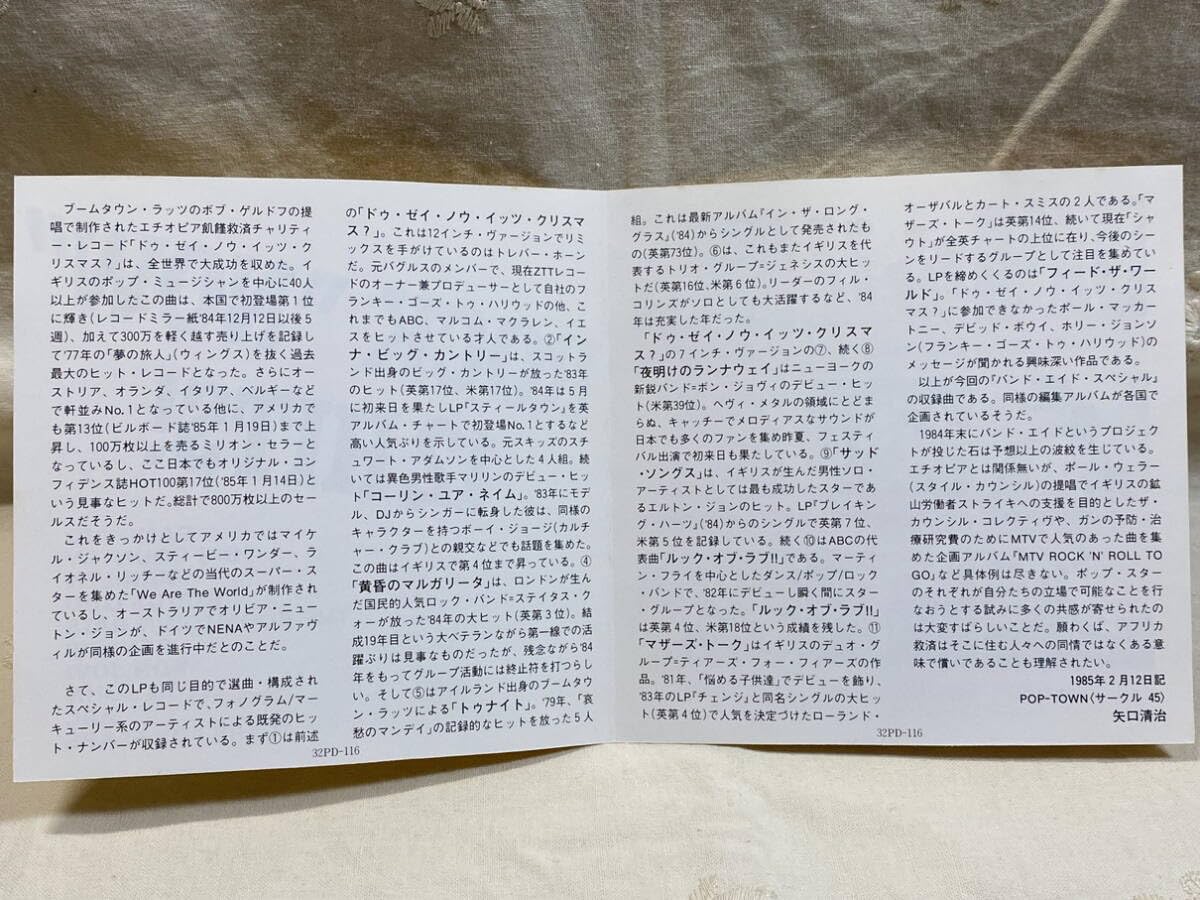 ブームタウン・ラッツのボブ・ゲルドフの提
唱で制作されたエチオピア飢饉救済チャリティ
ー・レコード「ドゥ・ゼイ・ノウ・イッツ・ク
リスマス?」は、全世界で大成功を収めた。イ
ギリスのポップ・ミュージシャンを中心に40人
以上が参加したこの曲は、本国で初登場第1位
に輝き(レコードミラー紙'84年12月12日以後5
週)、加えて300万を軽く越す売り上げを記録し
て'77年の「夢の旅人」(ウィングス)を抜く過去
最大のヒット・レコードとなった。さらにオー
ストリア、オランダ、イタリア、ベルギーなど
で軒並みNo.1となっている他に、アメリカで
も第13位(ビルボード誌'85年1月19日)まで上
昇し、100万枚以上を売るミリオン・セラーと
なっているし、ここ日本でもオリジナル・コン
フィデンス誌HOT100第17位('85年1月14日)と
いう見事なヒットだ。総計で800万枚以上のセー
ルスだそうだ。
これをきっかけとしてアメリカではマイケ
ル・ジャクソン、スティービー・ワンダー、ラ
イオネル・リッチーなどの当代のスーパー・ス
ターを集めた「We Are The World」が制作され
ているし、オーストラリアでオリビア・ニュー
トン・ジョンが、ドイツでNENAやアルファヴ
ィルが同様の企画を進行中だとのことだ。
さて、このLPも同じ目的で選曲・構成され
たスペシャル・レコードで、フォノグラム/マー
キューリー系のアーティストによる既発のヒッ
ト・ナンバーが収録されている。まず①は前述
の「ドゥ・ゼイ・ノウ・イッツ・クリスマ
ス?」。これは12インチ・ヴァージョンでリミ
ックスを手がけているのはトレバー・ホーン
だ。元バグルスのメンバーで、現在ZTTレコー
ドのオーナー兼プロデューサーとして自社のフ
ランキー・ゴーズ・トゥ・ハリウッドの他、こ
れまでもABC、マルコム・マクラレン、イエ
スをヒットさせている才人である。②「イン
ナ・ビッグ・カントリー」は、スコットラ
ンド出身のビッグ・カントリーが放った'83年
のヒット(英第17位、米第17位)。'84年は5月
に初来日を果たしLP「スティールタウン」を英
アルバム・チャートで初登場No.1とするなど
高い人気ぶりを示している。元スキッズのスチ
ュワート・アダムソンを中心とした4人組。続
いては異色男性歌手マリリンのデビュー・ヒッ
ト「コーリン・ユア・ネイム」。'83年にモデ
ル、DJからシンガーに転身した彼は、同様の
キャラクターを持つボーイ・ジョージ(カルチ
ャー・クラブ)との親交などでも話題を集めた。
この曲はイギリスで第4位まで昇っている。④
「黄昏のマルガリータ」は、ロンドンが生ん
だ国民的人気ロック・バンド=ステイタス・ク
ォーが放った'84年の大ヒット(英第3位)。結
成19年目という大ベテランながら第一線での活
躍ぶりは見事なものだったが、残念ながら'84
年をもってグループ活動には終止符を打つらし
い。そして⑤はアイルランド出身のブームタウ
ン・ラッツによる「トゥナイト」。'79年、「哀
愁のマンデイ」の記録的なヒットを放った5人
32PD-116
組。これは最新アルバム『イン・ザ・ロング・
グラス』('84)からシングルとして発売されたも
の(英第73位)。⑥は、これもまたイギリスを代
表するトリオ・グループ=ジェネシスの大ヒッ
トだ(英第16位、米第6位)。リーダーのフィル・
コリンズがソロとしても大活躍するなど、'84
年は充実した年だった。
「ドゥ・ゼイ・ノウ・イッツ・クリスマ
ス?」の7インチ・ヴァージョンの⑦、続く⑧
「夜明けのランナウェイ」はニューヨークの
新鋭バンド=ボン・ジョヴィのデビュー・ヒッ
ト(米第39位)。ヘヴィ・メタルの領域にとどま
らぬ、キャッチーでメロディアスなサウンドが
日本でも多くのファンを集め昨夏、フェスティ
バル出演で初来日も果たしている。⑨「サッド
・ソングス」は、イギリスが生んだ男性ソロ・
アーティストとしては最も成功したスターであ
るエルトン・ジョンのヒット。LP『ブレイキン
グ・ハーツ』('84)からのシングルで英第7位、
米第5位を記録している。続く⑩はABCの代
表曲「ルック・オブ・ラブ!!」である。マーティ
ン・フライを中心としたダンス/ポップ/ロック
・バンドで、'82年にデビューし瞬く間にスター
・グループとなった。「ルック・オブ・ラブ!!」
は英第4位、米第18位という成績を残した。⑪
「マザーズ・トーク」はイギリスのデュオ・グ
ループ=ティアーズ・フォー・フィアーズの作
品。'81年、「悩める子供達」でデビューを飾り、
'83年のLP「チェンジ」と同名シングルの大ヒッ
ト(英第4位)で人気を決定づけたローランド・
32PD-116
オーザバルとカート・スミスの2人である。「マ
ザーズ・トーク」は英第14位、続いて現在「シャ
ウト」が全英チャートの上位に在り、今後のシー
ンをリードするグループとして注目を集めてい
る。LPを締めくくるのは「フィード・ザ・ワー
ルド」。「ドゥ・ゼイ・ノウ・イッツ・クリス
マス?」に参加できなかったポール・マッカー
トニー、デビッド・ボウイ、ホリー・ジョンソ
ン(フランキー・ゴーズ・トゥ・ハリウッド)の
メッセージが聞かれる興味深い作品である。
以上が今回の『バンド・エイド・スペシャル』
の収録曲である。同様の編集アルバムが各国で
企画されているそうだ。
1984年末にバンド・エイドというプロジェク
トが投じた石は予想以上の波紋を生じている。
エチオピアとは関係無いが、ポール・ウェラー
(スタイル・カウンシル)の提唱でイギリスの鉱
山労働者ストライキへの支援を目的としたザ・
カウンシル・コレクティヴや、ガンの予防・治
療研究費のためにMTVで人気のあった曲を集
めた企画アルバム「MTV ROCK 'N' ROLL TO
GO」など具体例は尽きない。ポップ・スター
のそれぞれが自分たちの立場で可能なことを行
なおうとする試みに多くの共感が寄せられたの
は大変すばらしいことだ。願わくば、アフリカ
救済はそこに住む人々への同情ではなくある意
味で償いであることも理解されたい。
1985年2月12日記
POP-TOWN〈サークル 45〉
矢口清治